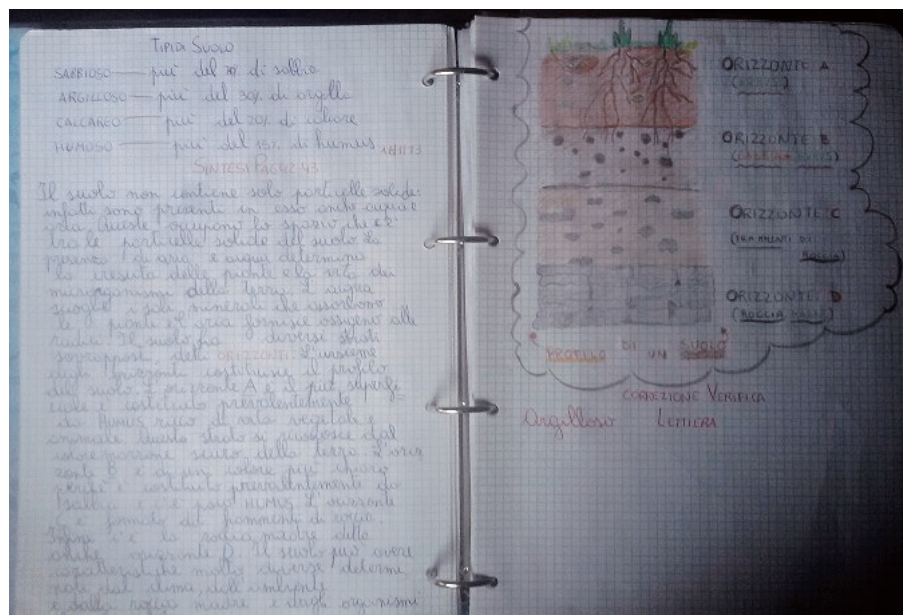 TIPI DI SUOLO
SABBIOSO — più del 70% di sabbia
ARGILLOSO — più del 30% di argilla
CALCAREO — più del 20% di calcare
HUMOSO — più del 15% di humus
SINTESI PAG 42.43
Il suolo non contiene solo particelle solide:
infatti sono presenti in esso anche acqua e
aria. Queste occupano lo spazio che c'è
tra le particelle solide del suolo. La
presenza di aria e acqua determina
la crescita delle piante e la vita dei
microrganismi della terra. L'acqua
scioglie i sali minerali che assorbono
le piante e l'aria fornisce ossigeno alle
radici. Il suolo ha diversi strati
sovrapposti, detti ORIZZONTI. L'insieme
degli orizzonti costituisce il profilo
del suolo. L'orizzonte A è il più superfi
ciale è costituito prevalentemente
da HUMUS ricco di vita vegetale e
animale. Questo strato si riconosce dal
colore marrone scuro della terra. L'oriz
zonte B è di un colore più chiaro
perché è costituito prevalentemente da
sabbia e c'è poco HUMUS. L'orizzonte
C è formato da frammenti di roccia.
Infine c'è la roccia madre detta
anche orizzonte D. Il suolo può avere
caratteristiche molto diverse determi
nate dal clima, dall'ambiente
e dalla roccia madre e dagli organismi
ORIZZONTE A
(HUMUS)
ORIZZONTE B
ORIZZONTE C
(FRAMMENTI DI
ROCCIA)
ORIZZONTE D
(ROCCIA MADRE)
PROFILO DI UN SUOLO
CORREZIONE VERIFICA
Argilloso LETTIERA